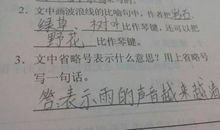 2. 文中画波浪线的比喻句中,作者把野石、
绿草、树叶比作琴键,还可以把
野花比作琴键。
3. 文中省略号表示什么意思?用上省略号
写一句话。
答:表示雨的声音越来越